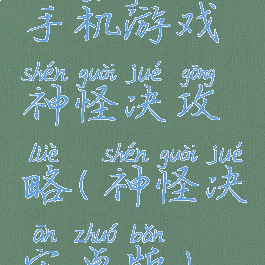 手机游戏
shén guài jué gōng
神怪决攻
lüè shén guài jué
略(神怪决
ān zhuó bǎn
安卓版)